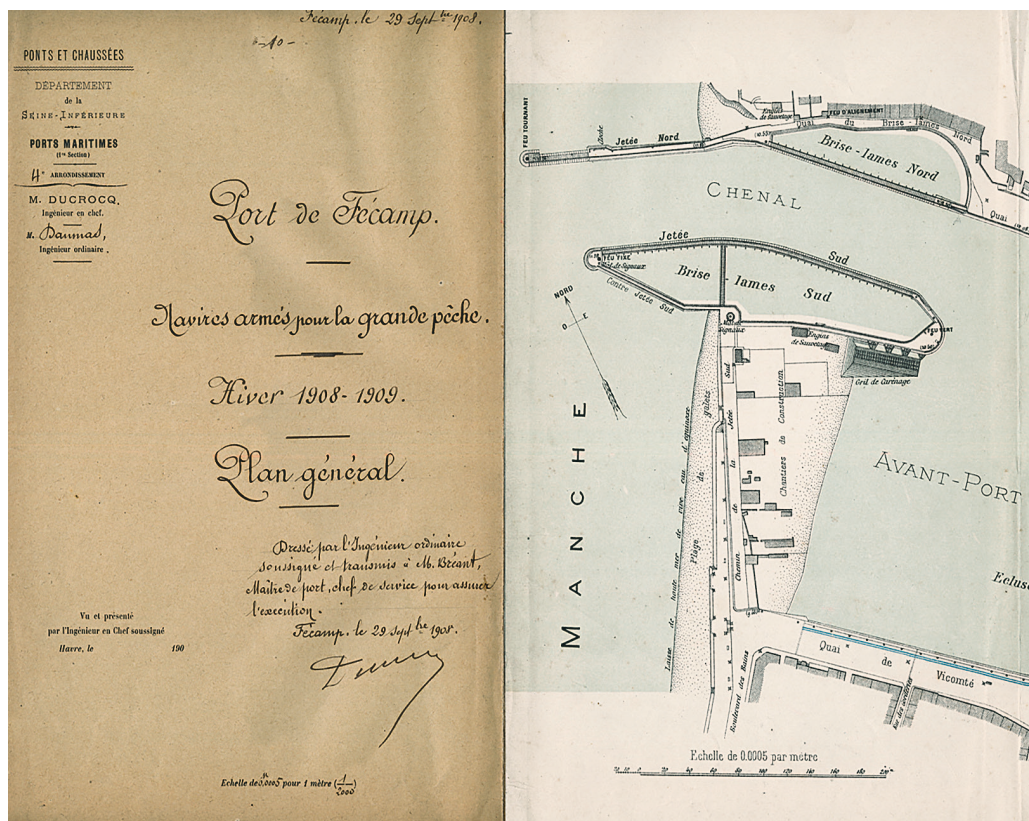 Fécamp. le 29 Sept bre 1908.
-10-
PONTS ET CHAUSSÉES
DÉPARTEMENT
de la
SEINE-INFÉRIEURE
PORTS MARITIMES
(1re Section)
4e ARRONDISSEMENT
M. DUCROCQ,
Ingénieur en chef.
M. Daumas,
Ingénieur ordinaire.
Port de Fécamp.
Navires armés pour la grande pêche.
Hiver 1908-1909.
Plan général.
Dressé par l'Ingénieur ordinaire
soussigné et transmis à M. Bréant,
Maître de port, chef de service pour assurer
l'exécution.
Fécamp. le 29 Sept bre 1908.
Vu et présenté
par l'Ingénieur en Chef soussigné
Havre, le 190
Echelle de 0m0005 pour 1 mètre (1/2000)
FEU TOURNANT
Cloche
Jetée Nord
Engins
de Sauvetage
FEU D'ALIGNEMENT
Quai du Brise-lames Nord
Brise-lames Nord
Quai
CHENAL
Jetée Sud
FEU FIXE
Mât de Signaux
Brise lames Sud
Contre Jetée Sud
NORD
O E
Signaux
Engins
de Sauvetage
FEU VERT
Gril de Carénage
MANCHE
Laisse de haute mer de vive eau d'équinoxe
Plage de galets
Chemin de la Jetée Sud
Chantiers de Construction
AVANT-PORT
Ecluse
Quai de Vicomté
Boulevard des Bains
Echelle de 0.0005 par mètre
20 10 0 20 40 60 80 100 120 140 160 180 200